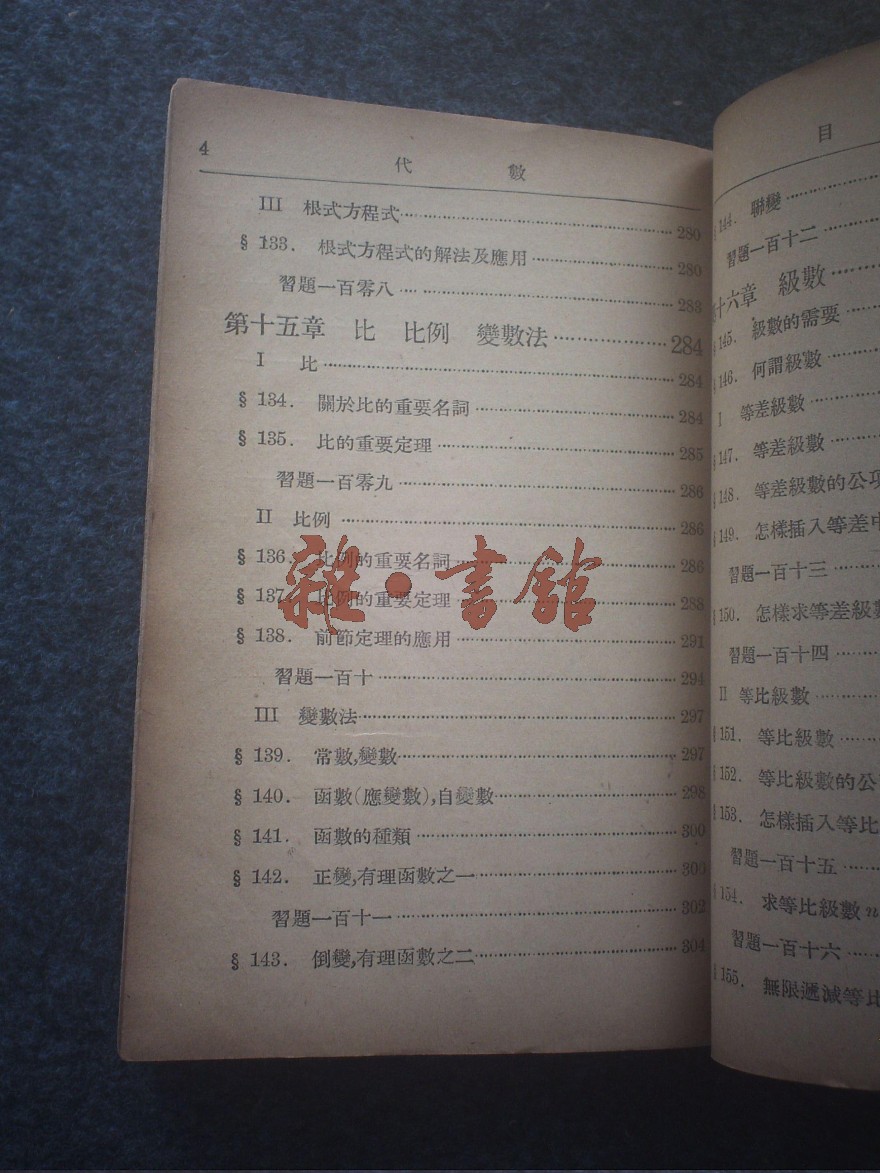 4
代 數
III 根式方程式 280
§ 133. 根式方程式的解法及應用 280
習題一百零八 283
第十五章 比 比例 變數法 284
I 比 284
§ 134. 關於比的重要名詞 284
§ 135. 比的重要定理 285
習題一百零九 286
II 比例 286
§ 136. 比例的重要名詞 286
§ 137. 比例的重要定理 288
§ 138. 前節定理的應用 291
習題一百十 294
III 變數法 297
§ 139. 常數,變數 297
§ 140. 函數(應變數),自變數 298
§ 141. 函數的種類 300
§ 142. 正變,有理函數之一 300
習題一百十一 302
§ 143. 倒變,有理函數之二 304
雜·書館
目
§ 144. 聯變
習題一百十二
十六章 級數
§ 145. 級數的需要
§ 146. 何謂級數
I 等差級數
§ 147. 等差級數
§ 148. 等差級數的公項
§ 149. 怎樣插入等差中
習題一百十三
§ 150. 怎樣求等差級數
習題一百十四
II 等比級數
§ 151. 等比級數
§ 152. 等比級數的公
§ 153. 怎樣插入等比
習題一百十五
§ 154. 求等比級數n
習題一百十六
§ 155. 無限遞減等比